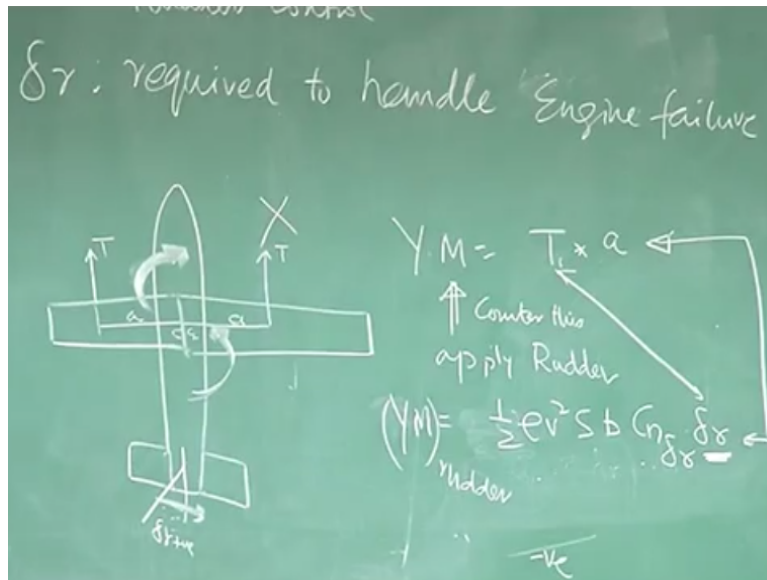 δr : required to handle Engine failure
T
T
a
a
Y.M = T_L * a
Counter this
apply Rudder
(YM)rudder = 1/2 ρv² S b Cnδr δr
δr +ve
-ve